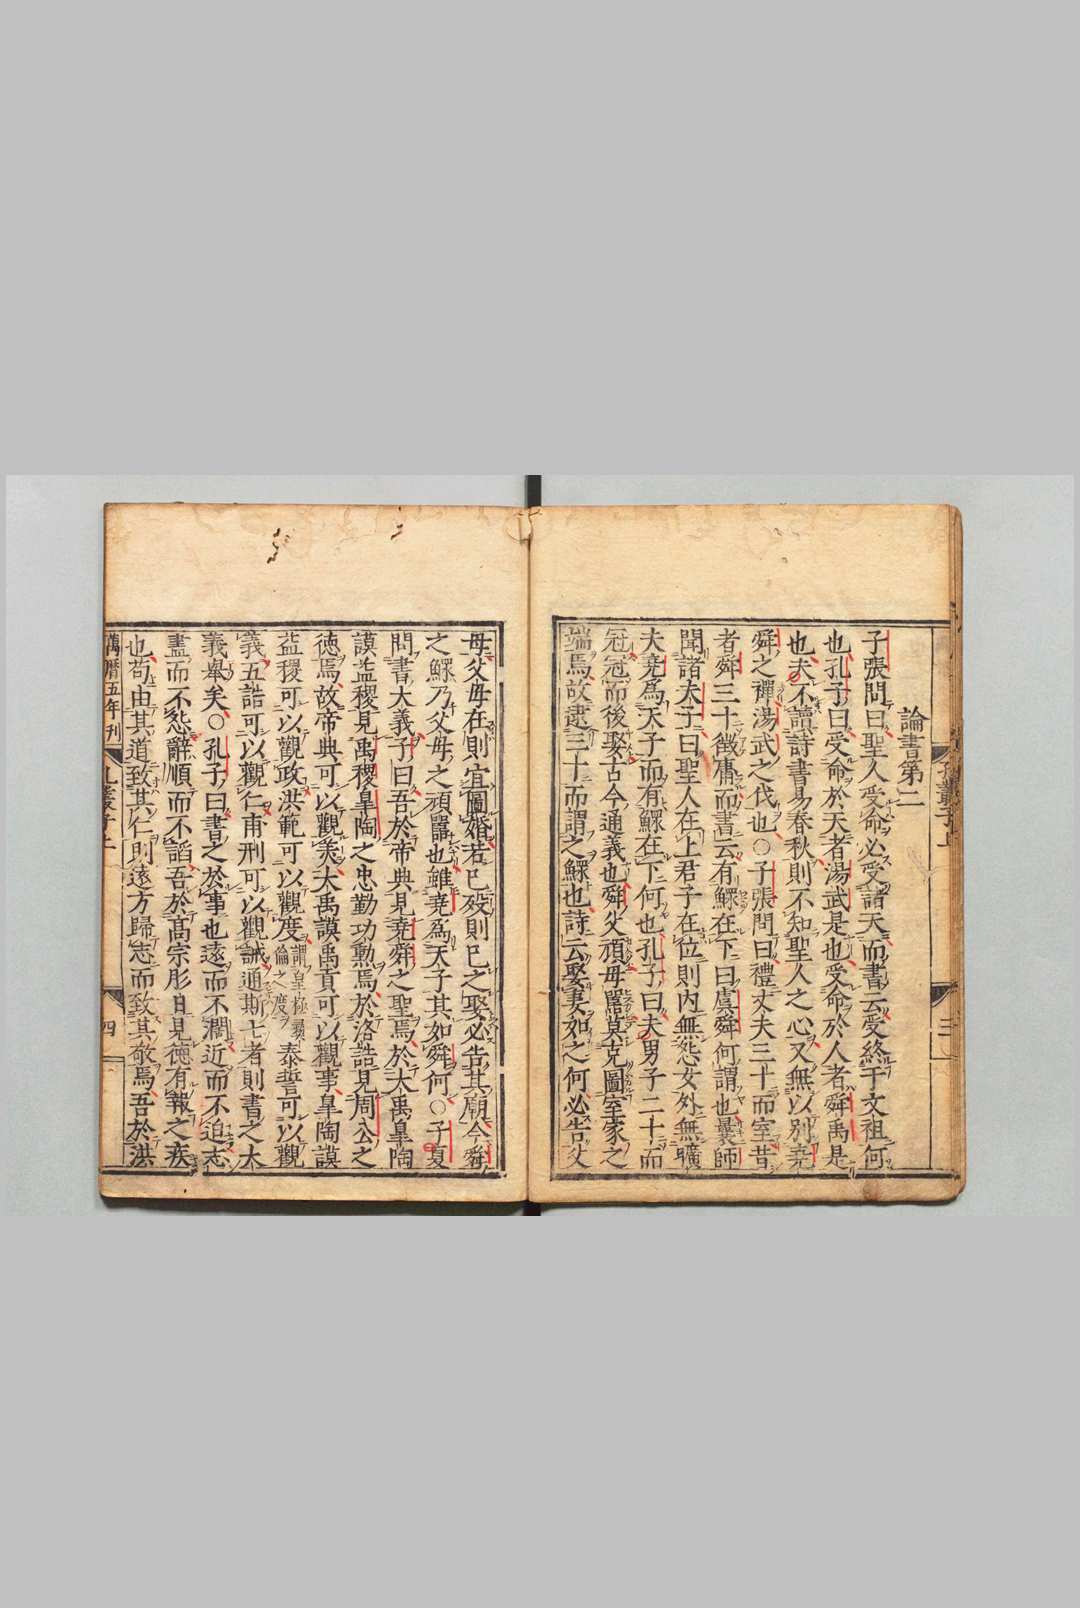 論書第二
子張問曰聖人受命必受諸天而書云受終于文祖何
也孔子曰受命於天者湯武是也受命於人者舜禹是
也夫不讀詩書易春秋則不知聖人之心又無以別堯
舜之禪湯武之伐也〇子張問曰禮丈夫三十而室昔
者舜三十徵庸而書云有鰥在下曰虞舜何謂也曩師
聞諸夫子曰聖人在上君子在位則內無怨女外無曠
夫堯爲天子而有鰥在下何也孔子曰夫男子二十而
冠冠而後娶古今通義也舜父頑母嚚莫克圖室家之
端焉故逮三十而謂之鰥也詩云娶妻如之何必告父
母父母在則宜圖婚若已歿則已之娶必告其廟今舜
之鰥乃父母之頑嚚也雖堯爲天子其如舜何〇子夏
問書大義子曰吾於帝典見堯舜之聖焉於大禹皐陶
謨益稷見禹稷皐陶之忠勤功勲焉於洛誥見周公之
徳焉故帝典可以觀美大禹謨禹貢可以觀事皐陶謨
益稷可以觀政洪範可以觀度謂皇極彝倫之度泰誓可以觀
義五誥可以觀仁甫刑可以觀誡通斯七者則書之大
義舉矣〇孔子曰書之於事也遠而不濶近而不迫志
盡而不怨辭順而不謟吾於高宗肜日見徳有報之疾
也苟由其道致其仁則遠方歸志而致其敬焉吾於洪
萬曆五年刊
孔叢子上
四